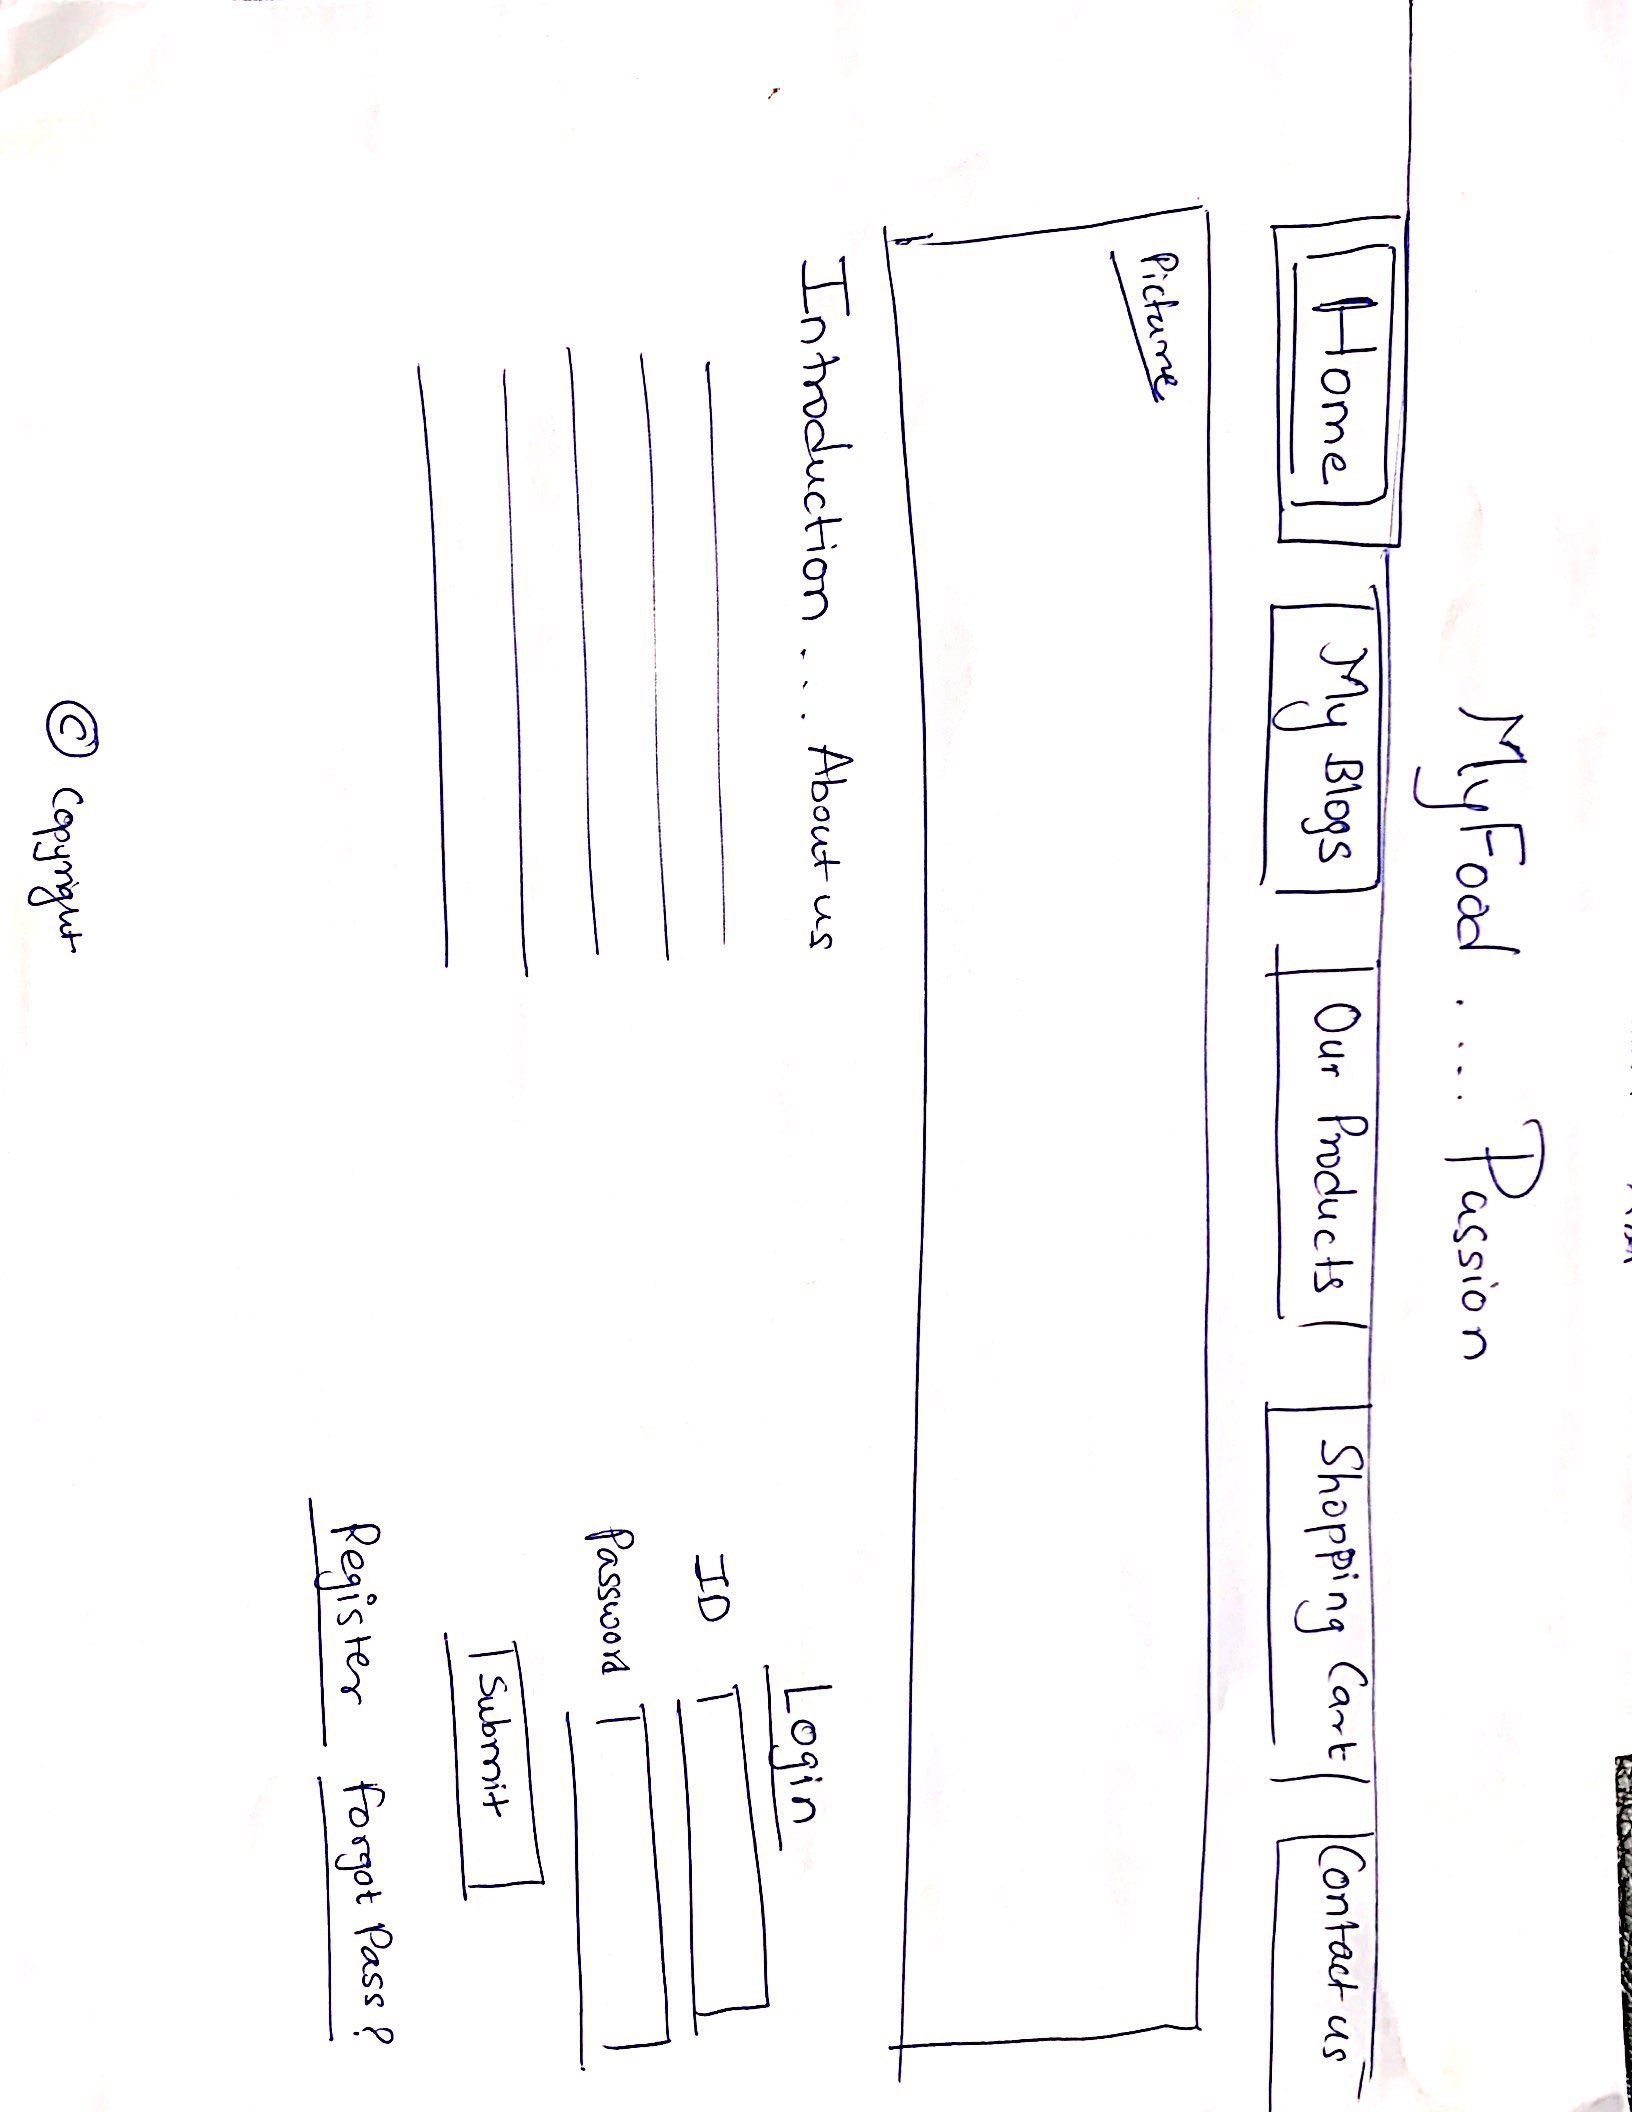 MyFood ..... Passion
Home My Blogs Our Products Shopping Cart Contact us
Picture
Introduction ... About us
Login
ID
Password
Submit
Register Forgot Pass?
© Copyright